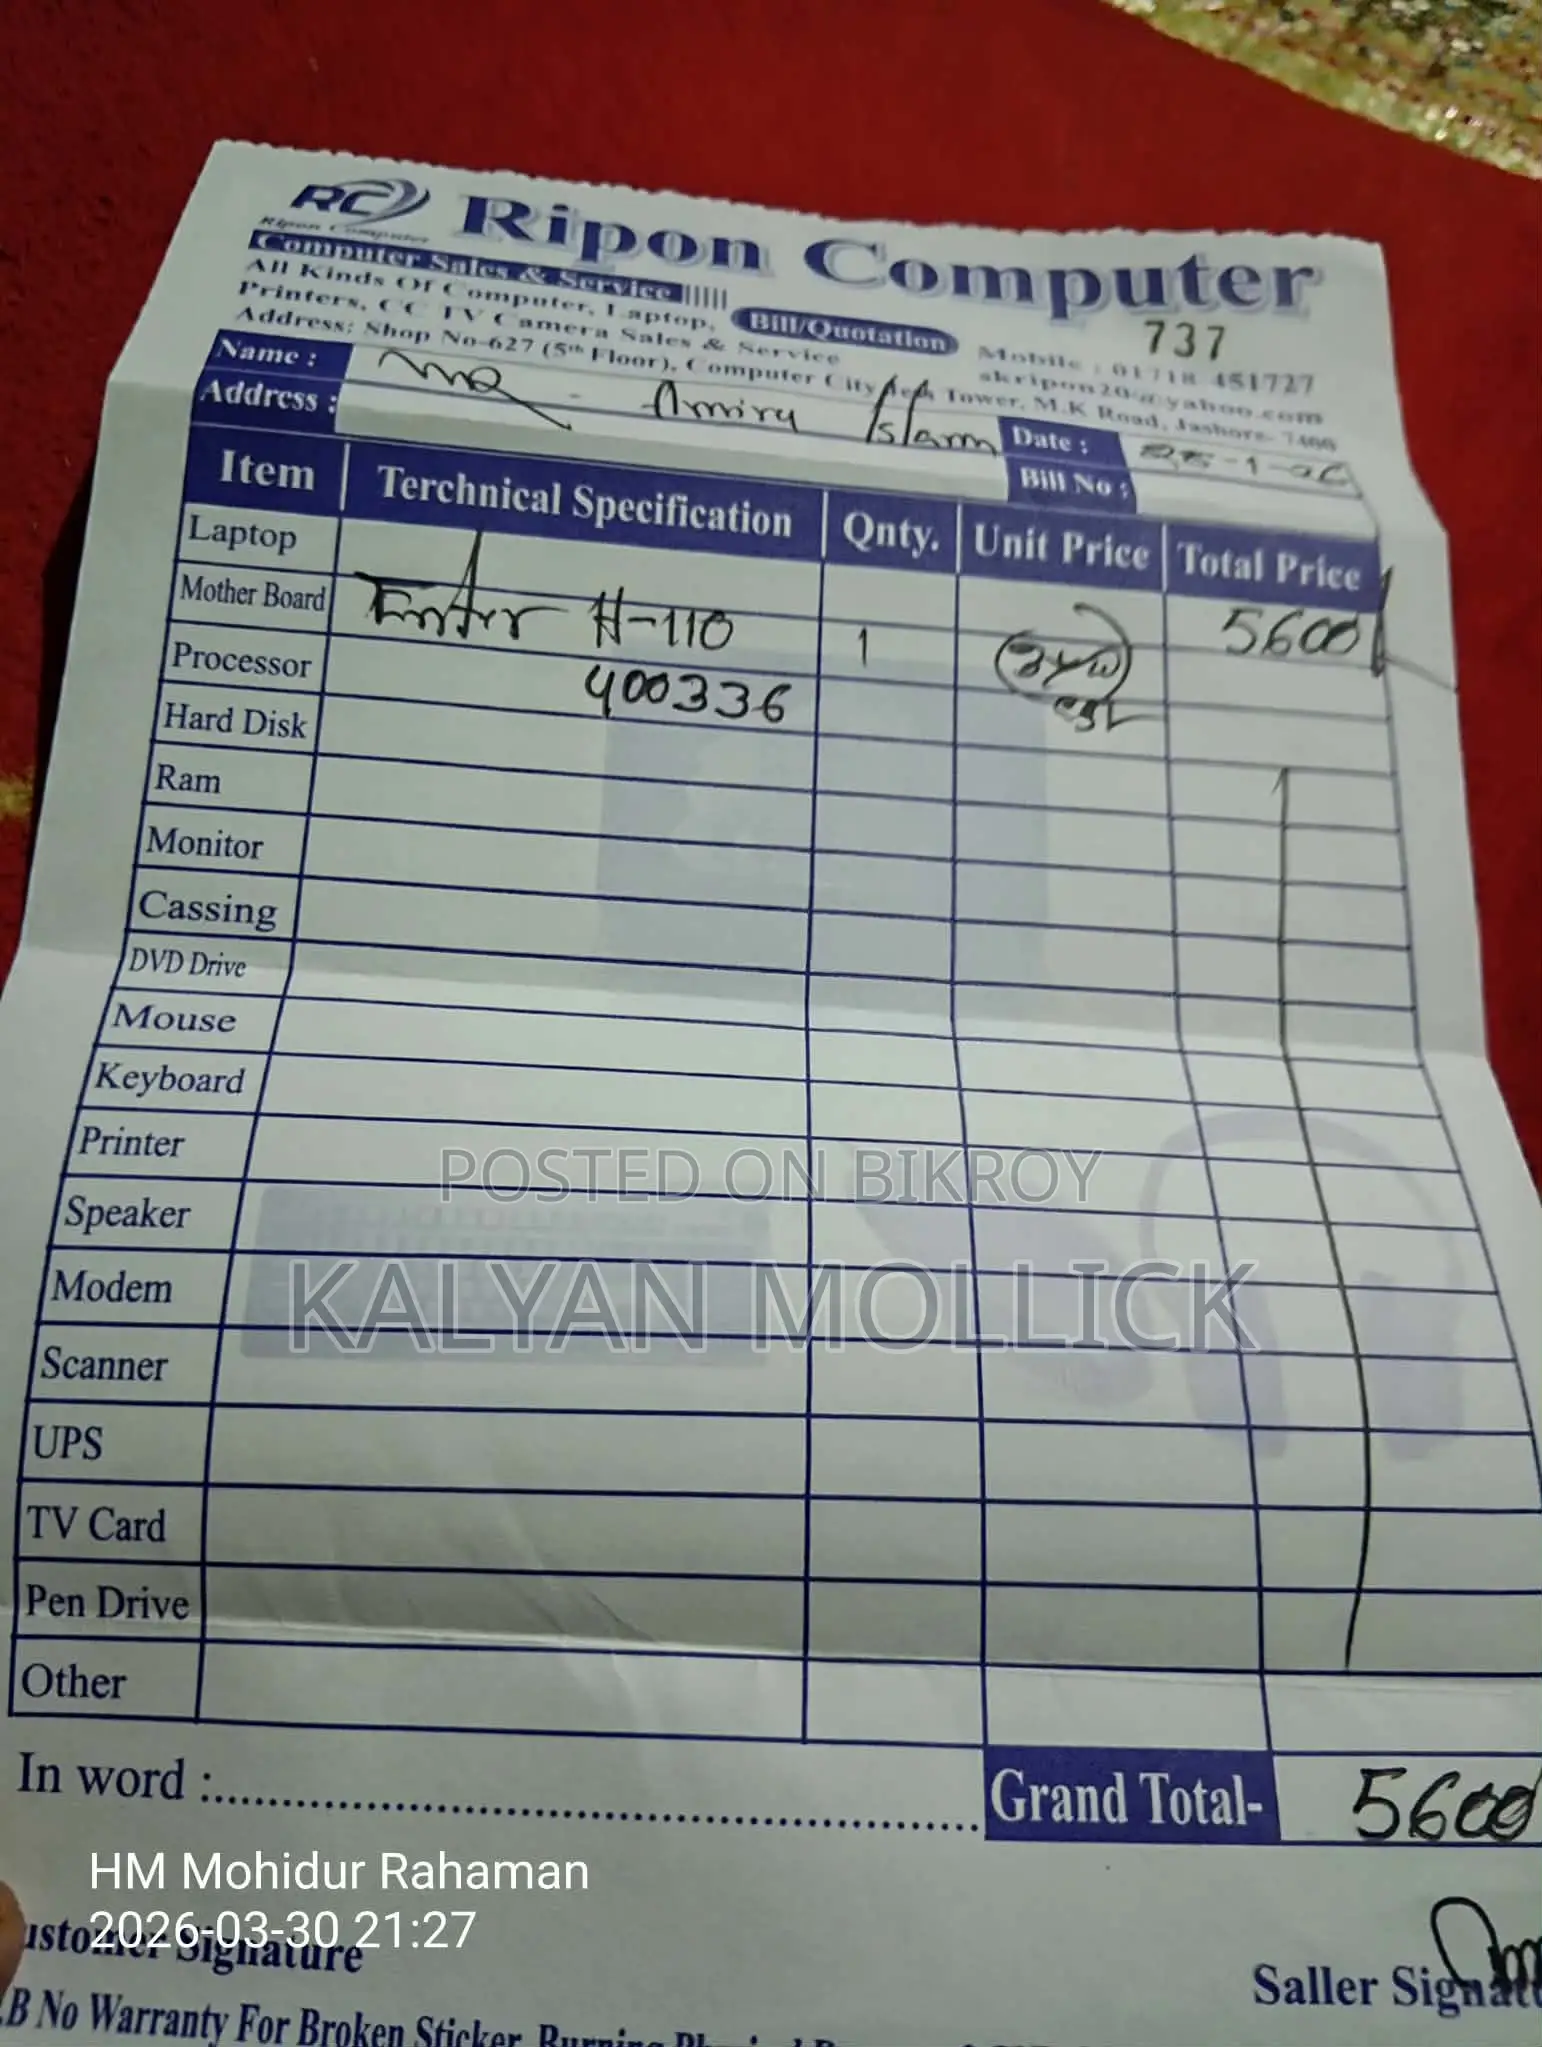 RC Ripon Computer
Ripon Computer
Computer Sales & Service
All Kinds Of Computer, Laptop,
Printers, CC TV Camera Sales & Service
Bill/Quotation
737
Mobile : 01718 451727
skripon20@yahoo.com
Address: Shop No-627 (5th Floor), Computer City Tech Tower, M.K Road, Jashore- 7400
Name :
Islam
Address :
Date :
Bill No :
Item Terchnical Specification Qnty. Unit Price Total Price
Laptop
Mother Board H-110 1 5600
Processor 400336
Hard Disk
Ram
Monitor
Cassing
DVD Drive
Mouse
Keyboard
Printer
POSTED ON BIKROY
Speaker
KALYAN MOLLICK
Modem
Scanner
UPS
TV Card
Pen Drive
Other
In word :
Grand Total- 5600
HM Mohidur Rahaman
2026-03-30 21:27
ustomer Signature
Saller Signat
.B No Warranty For Broken Sticker, Burning